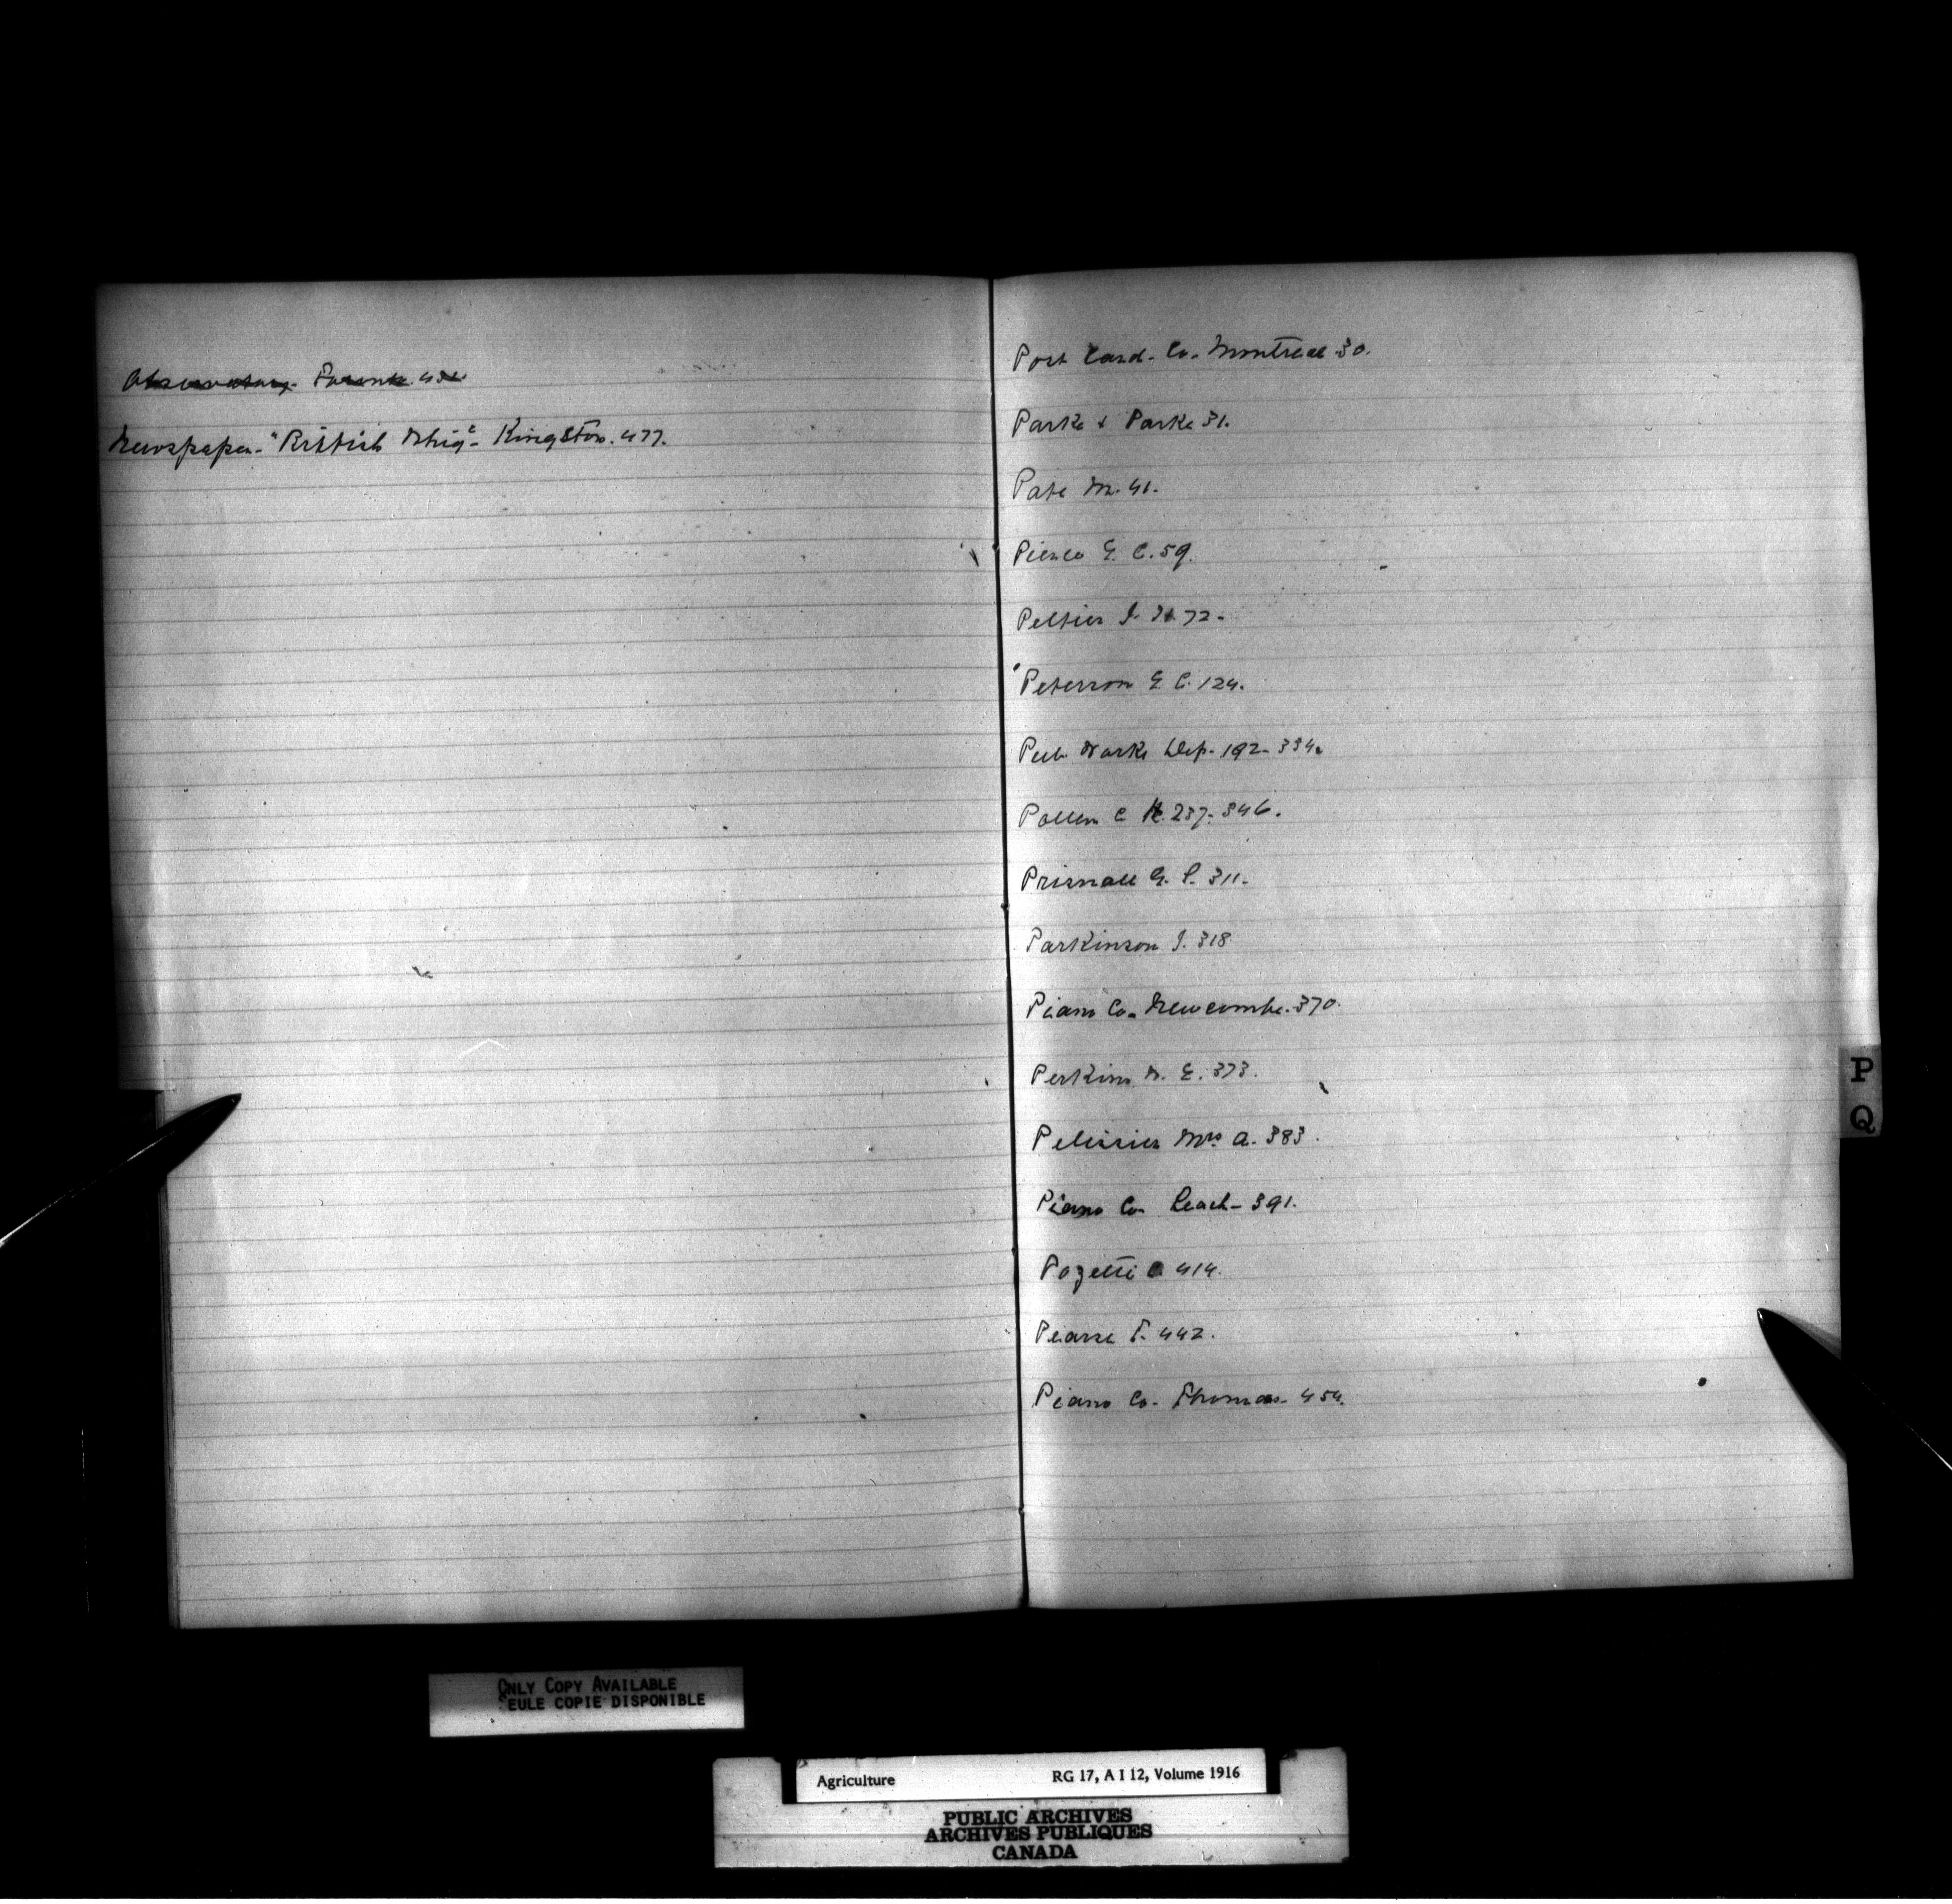 Observatory- Toronto. 432
Newspaper- "British Whig"- Kingston. 477.
Post Card- Co- Montreal 30.
Parke & Parke 31.
Pate M. 41.
Pierce G. C. 59.
Peltier J. N. 72-
Peterson G C. 124.
Pub Works Dep- 192- 334.
Pollen C H. 237- 346.
Prisnall G. P. 311-
Parkinson J. 318
Piano Co- Newcombe. 370.
Perkins W. E. 373.
Pelissier Mrs A. 383.
Piano Co- Leach- 391.
Pozetti C 414.
Pearse T. 442.
Piano Co- Thomas- 454.
P
Q
ONLY COPY AVAILABLE
SEULE COPIE DISPONIBLE
Agriculture RG 17, A I 12, Volume 1916
PUBLIC ARCHIVES
ARCHIVES PUBLIQUES
CANADA